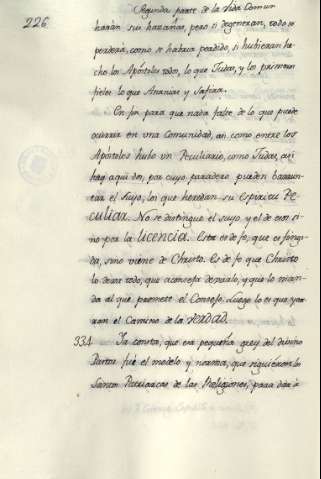 Segunda parte de la Vida Comun
226
harán sus hazañas, pero si degeneran, todo se
perderá, como se habria perdido, si hubieran he-
cho los Apóstoles todos, lo que Judas, y los primeros
fieles lo que Ananias y Safira.
En fin para que nada falte de lo que puede
ocurrir en una Comunidad, asi como entre los
Apóstoles hubo un Peculiario, como Judas, asi
hay aqui dos, por cuyo paradero pueden barrun-
tar el suyo, los que heredan su Espiritu Pe-
culiar. No se distingue el suyo, y el de esos si-
no por la licencia. Esta es de fe, que es fingi-
da, sino viene de Christo. Es de fe que Christo
lo de todo, que aconseja dejarlo, y que lo man-
da al que promete el Consejo. Luego lo es que yer-
ran el Camino de la Verdad.
334 Ya consta, que esta pequeña grey del divino
Pastor fue el modelo y norma, que siguieron los
Santos Patriarcas de las Religiones, para dar á